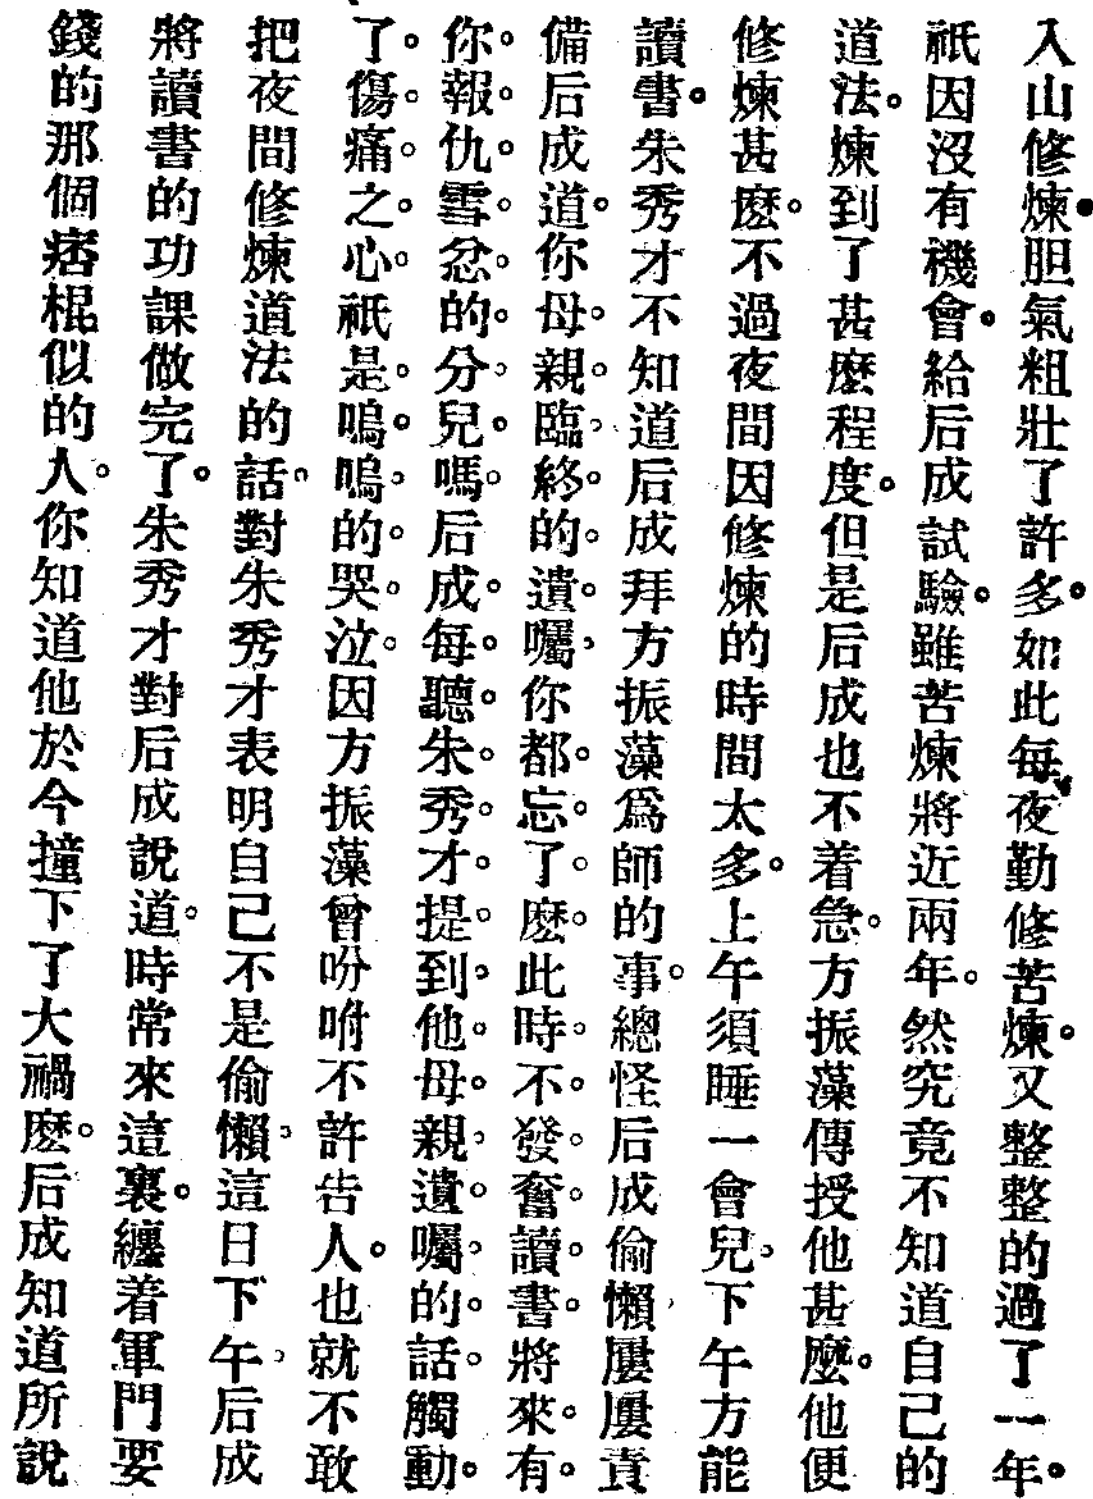 入山修煉。胆氣粗壯了許多。如此每夜勤修苦煉。又整整的過了一年。
祇因沒有機會。給后成試驗。雖苦煉將近兩年。然究竟不知道自己的
道法。煉到了甚麼程度。但是后成也不着急。方振藻傳授他甚麼。他便
修煉甚麽。不過夜間因修煉的時間太多。上午須睡一會兒。下午方能
讀書。朱秀才不知道后成拜方振藻爲師的事。總怪后成偷懶屢屢責
備后成道。你母。親。臨。終。的。遺。囑。你都。忘。了。麽。此時。不。發。奮。讀。書。將來。有。
你。報。仇。雪。忿。的。分。兒。嗎。后成。每。聽。朱。秀。才。提。到。他。母。親。遺。囑。的。話。觸動。
了。傷。痛。之。心。祇是。嗚。嗚。的。哭。泣。因方振藻曾吩咐不許告人。也就不敢
把夜間修煉道法的話。對朱秀才表明自己不是偷懶。這日下午。后成
將讀書的功課做完了。朱秀才對后成說道。時常來這裏。纏着軍門要
錢的那個痞棍似的人。你知道他於今撞下了大禍麽。后成知道所說